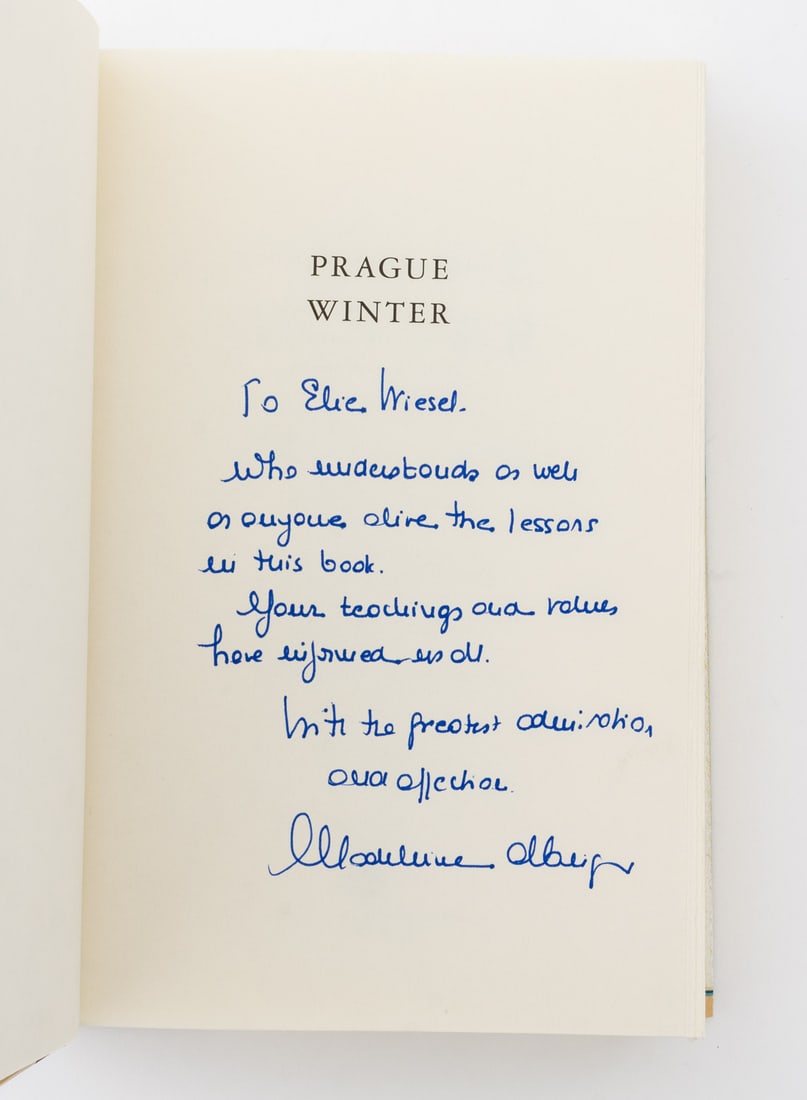 PRAGUE
WINTER
To Elie Wiesel.
Who understands as well
as anyone alive the lessons
in this book.
Your teachings and values
have informed us all.
With the greatest admiration
and affection.
Madeleine Albright